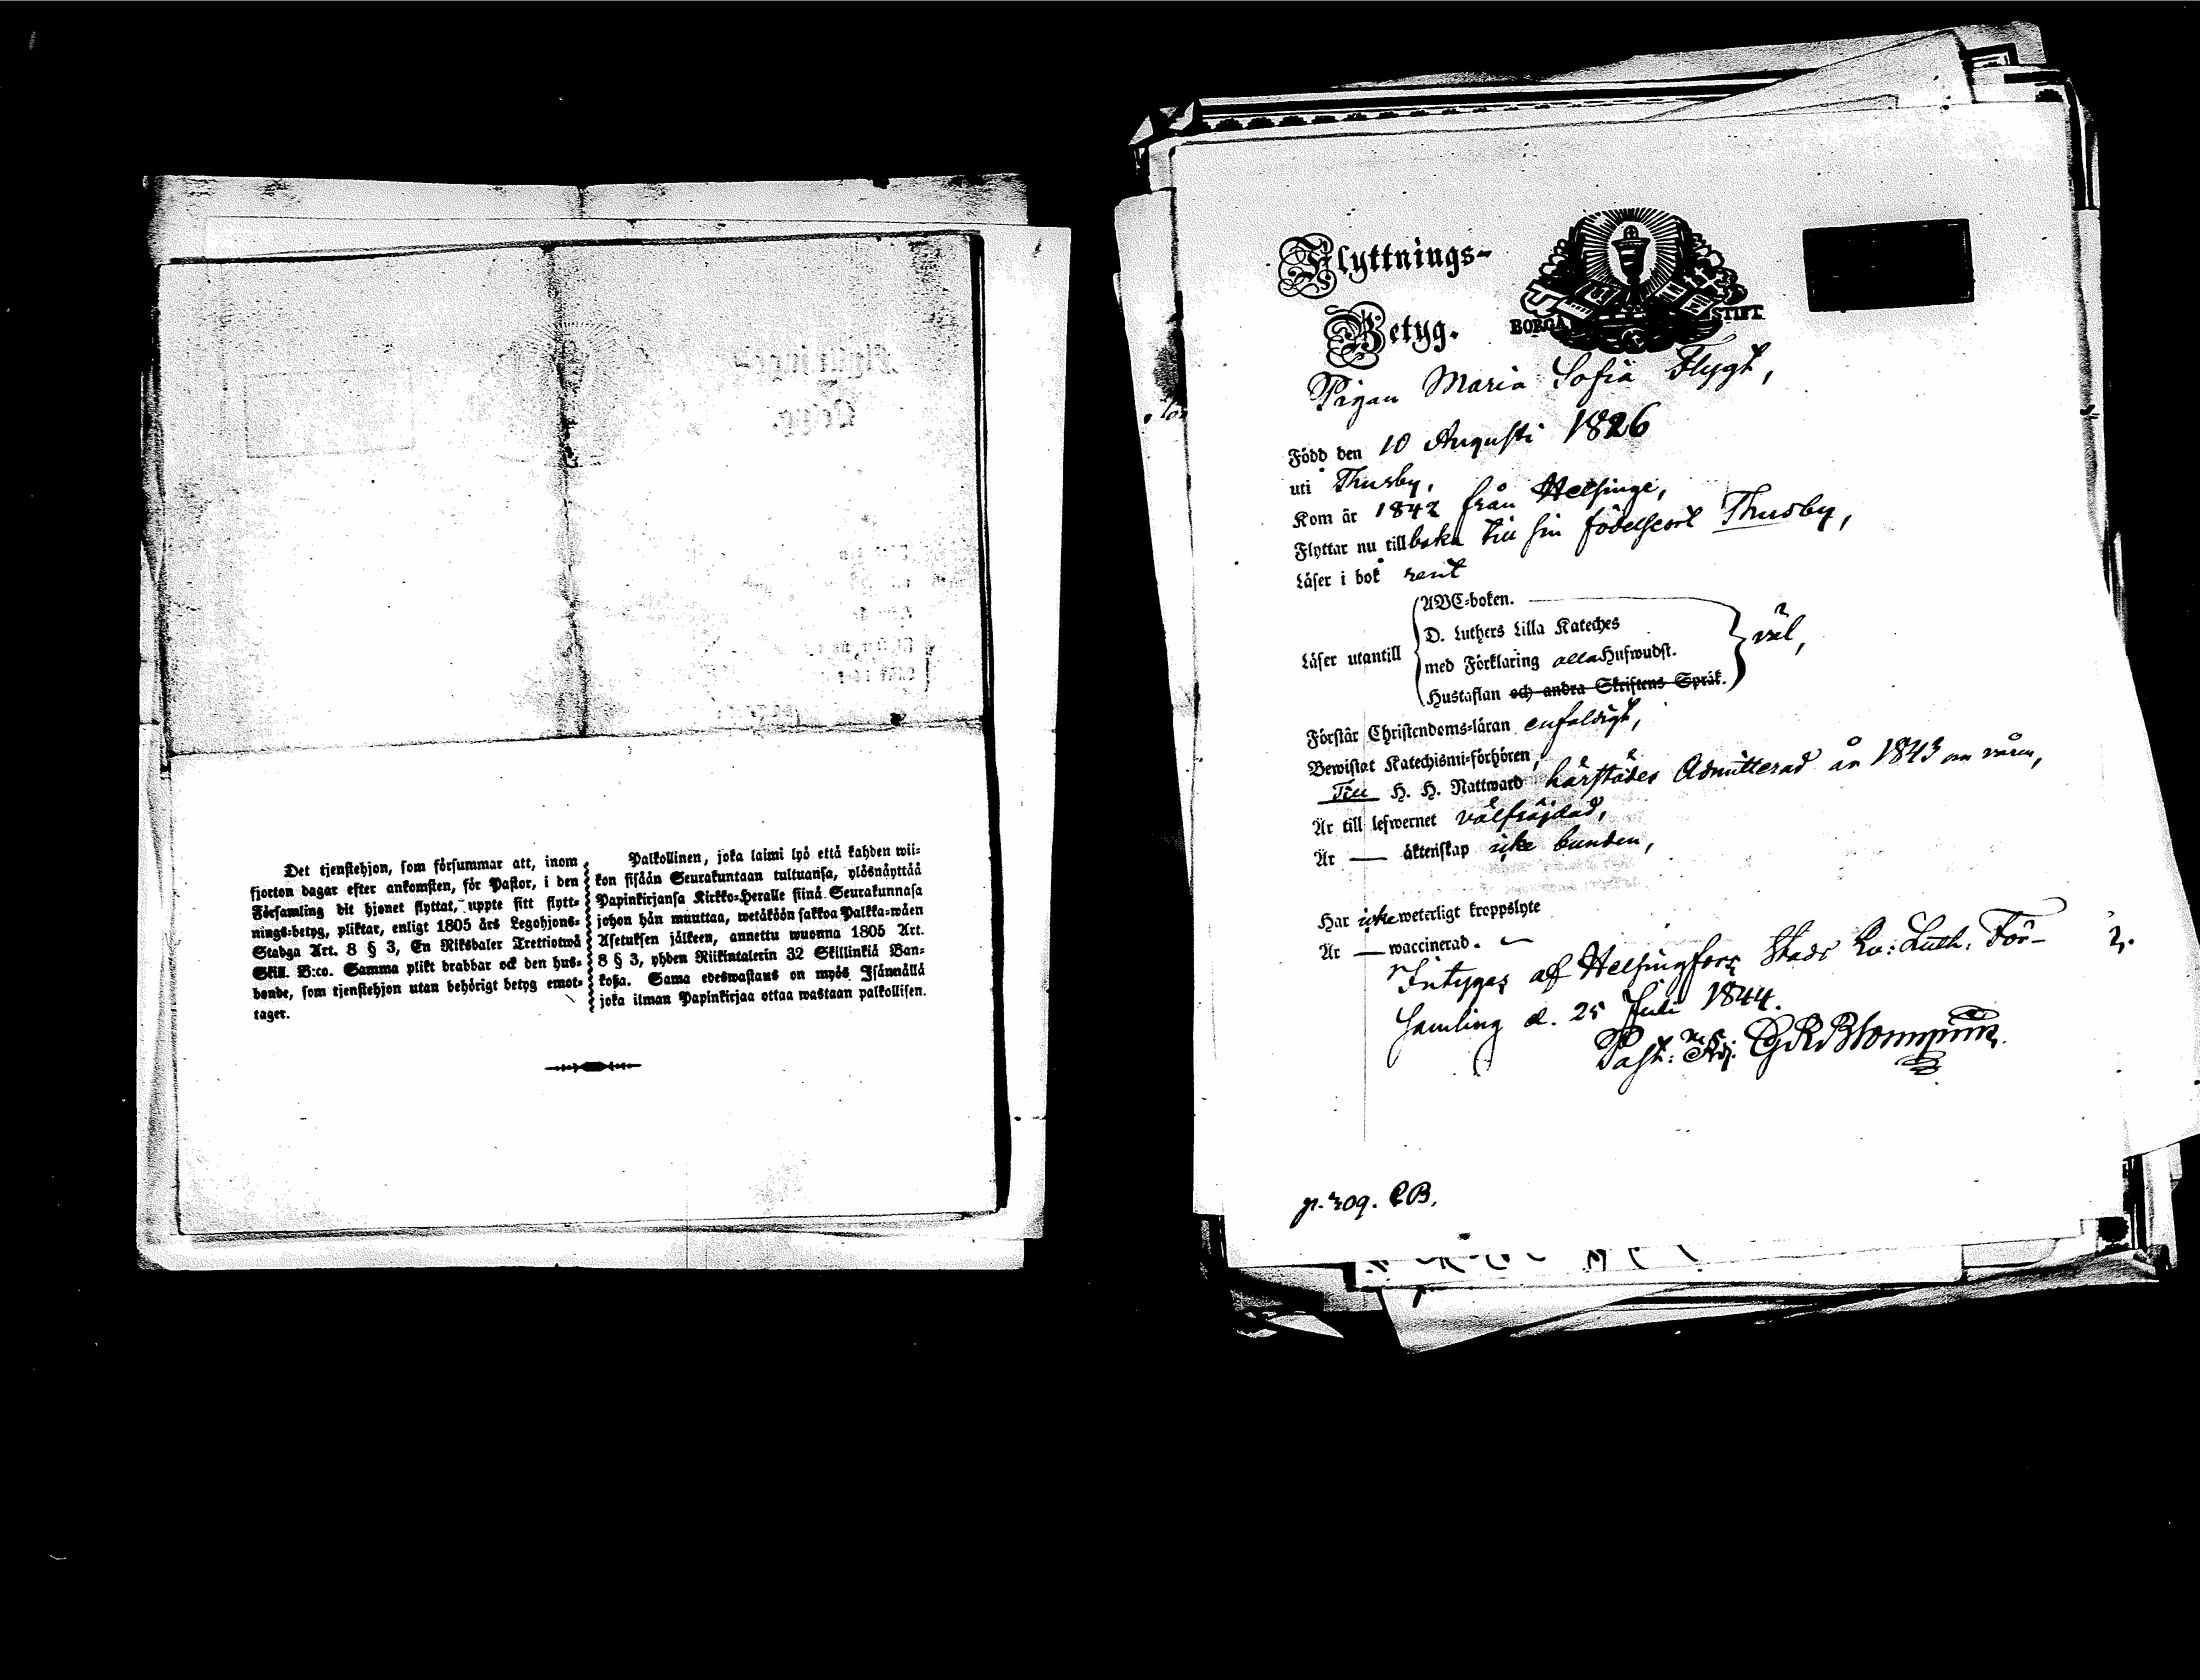 Det tjenstehjon, som försummar att, inom
fjorton dagar efter ankomsten, för Pastor, i den
Församling dit hjonet flyttat, uppte sitt flytt-
nings-betyg, pliktar, enligt 1805 års Legohjons-
Stadga Art. 8 § 3, En Riksdaler Trettiotwå
Skill. B:co. Samma plikt drabbar ock den hus-
bonde, som tjenstehjon utan behörigt betyg emot-
tager.
Palkollinen, joka laimi lyö että kahden wii-
kon sisään Seurakuntaan tultuansa, ylösnäyttää
Papinkirjansa Kirkko-Heralle siinä Seurakunnasa
johon hän muuttaa, wetäköön sakkoa Palkka-wäen
Asetuksen jälkeen, annettu wuonna 1805 Art.
8 § 3, yhden Riikintalerin 32 Skillinkiä Ban-
koßa. Sama edeswastaus on myös Isännällä
joka ilman Papinkirjaa ottaa wastaan palkollisen.
Flyttnings-
Betyg.
BORGÅ STIFT
Pigan Maria Sofia Flygt,
Född den 10 Augusti 1826
uti Thusby,
Kom år 1842 från Helsinge,
Flyttar nu tillbaka till sin födelseort Thusby,
Läser i bok rent
Läser utantill
ABC-boken.
D. Luthers Lilla Kateches
med Förklaring alla Hufwudst.
Hustaflan och andra Skriftens Språk.
väl,
Förstår Christendoms-läran enfaldigt,
Bewistat Katechismi-förhören,
Till H. H. Nattward härstädes Admitterad år 1843 om våren,
Är till lefwernet välfräjdad,
Är — äktenskap icke bunden,
Har icke weterligt kroppslyte
Är — waccinerad. —
Intygas af Helsingfors Stads Ev: Luth: För-
samling d. 25 Juli 1844.
Past: Adj.
p. 209. CB.